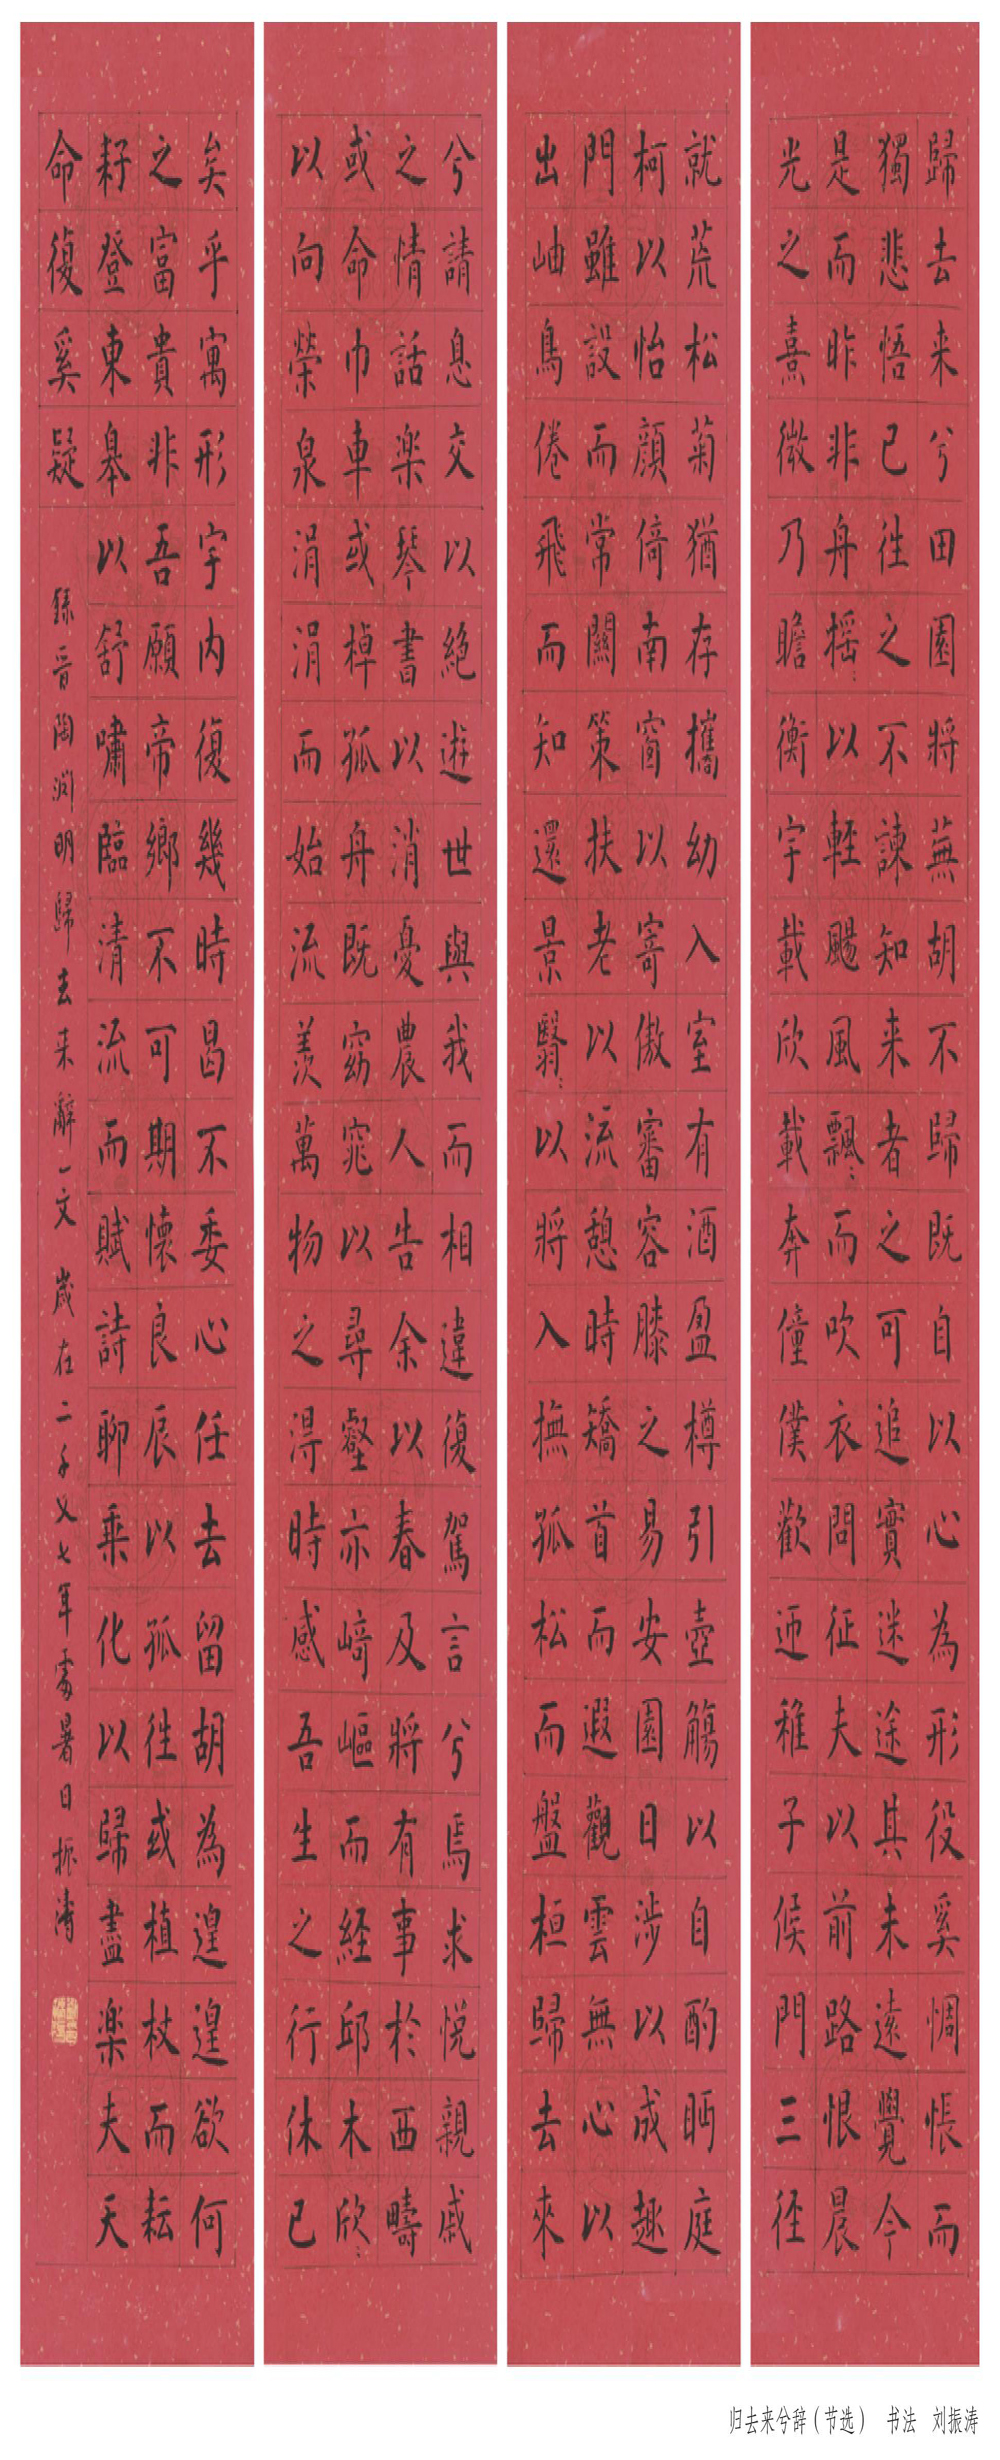 歸去来兮田園將蕪胡不歸既自以心為形役奚惆悵而
獨悲悟已往之不諫知来者之可追實迷途其未遠覺今
是而昨非舟摇:以輕颺風飄:而吹衣問征夫以前路恨晨
光之熹微乃瞻衡宇載欣載奔僮僕歡迎稚子候門三徑
就荒松菊猶存攜幼入室有酒盈樽引壺觴以自酌眄庭
柯以怡顔倚南窗以寄傲審容膝之易安園日涉以成趣
門雖設而常關策扶老以流憩時矯首而遐觀雲無心以
出岫鳥倦飛而知還景翳:以將入撫孤松而盤桓歸去來
兮請息交以絶遊世與我而相違復駕言兮焉求悦親戚
之情話楽琴書以消憂農人告余以春及將有事於西疇
或命巾車或棹孤舟既窈窕以尋壑亦崎嶇而経邱木欣:
以向榮泉涓涓而始流羨萬物之得時感吾生之行休已
矣乎寓形宇内復幾時曷不委心任去留胡為遑遑欲何
之富貴非吾願帝鄉不可期懷良辰以孤往或植杖而耘
耔登東皋以舒嘯臨清流而賦詩聊乘化以歸盡楽夫天
命復奚疑 錄晋陶渊明歸去来辭一文 歲在二千又七年處暑日振濤
归去来兮辞（节选） 书法 刘振涛